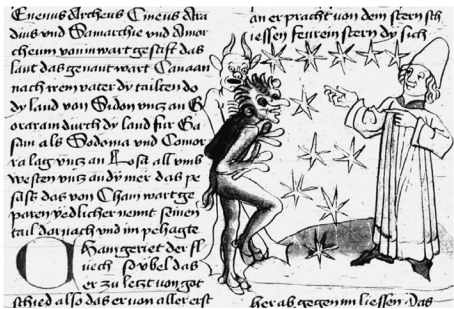 Euenus Archeus Cineus Ara
dius vnd Samarchie vnd Amor
cheum von in wart gestift das
lant das genant wart Canaan
nach irem vater dy tailten do
dy land von Sidon vntz an G
oraram durch dy land fur Ga
sam als Sodoma vnd Gomor
ra lag vntz an Losa all vmb
westen vntz an dy mer das pe
sass das von Cham wart ge
paren yedlicher nennt seinen
tail darnach vnd im pehagte
Cham geriet der fl
uech so vbel das
er zu letzt von got
schied also das er von aller erst
an er pracht von dem stern sch
iessen feur ein stern dy sich
her ab gegen im liessen Das